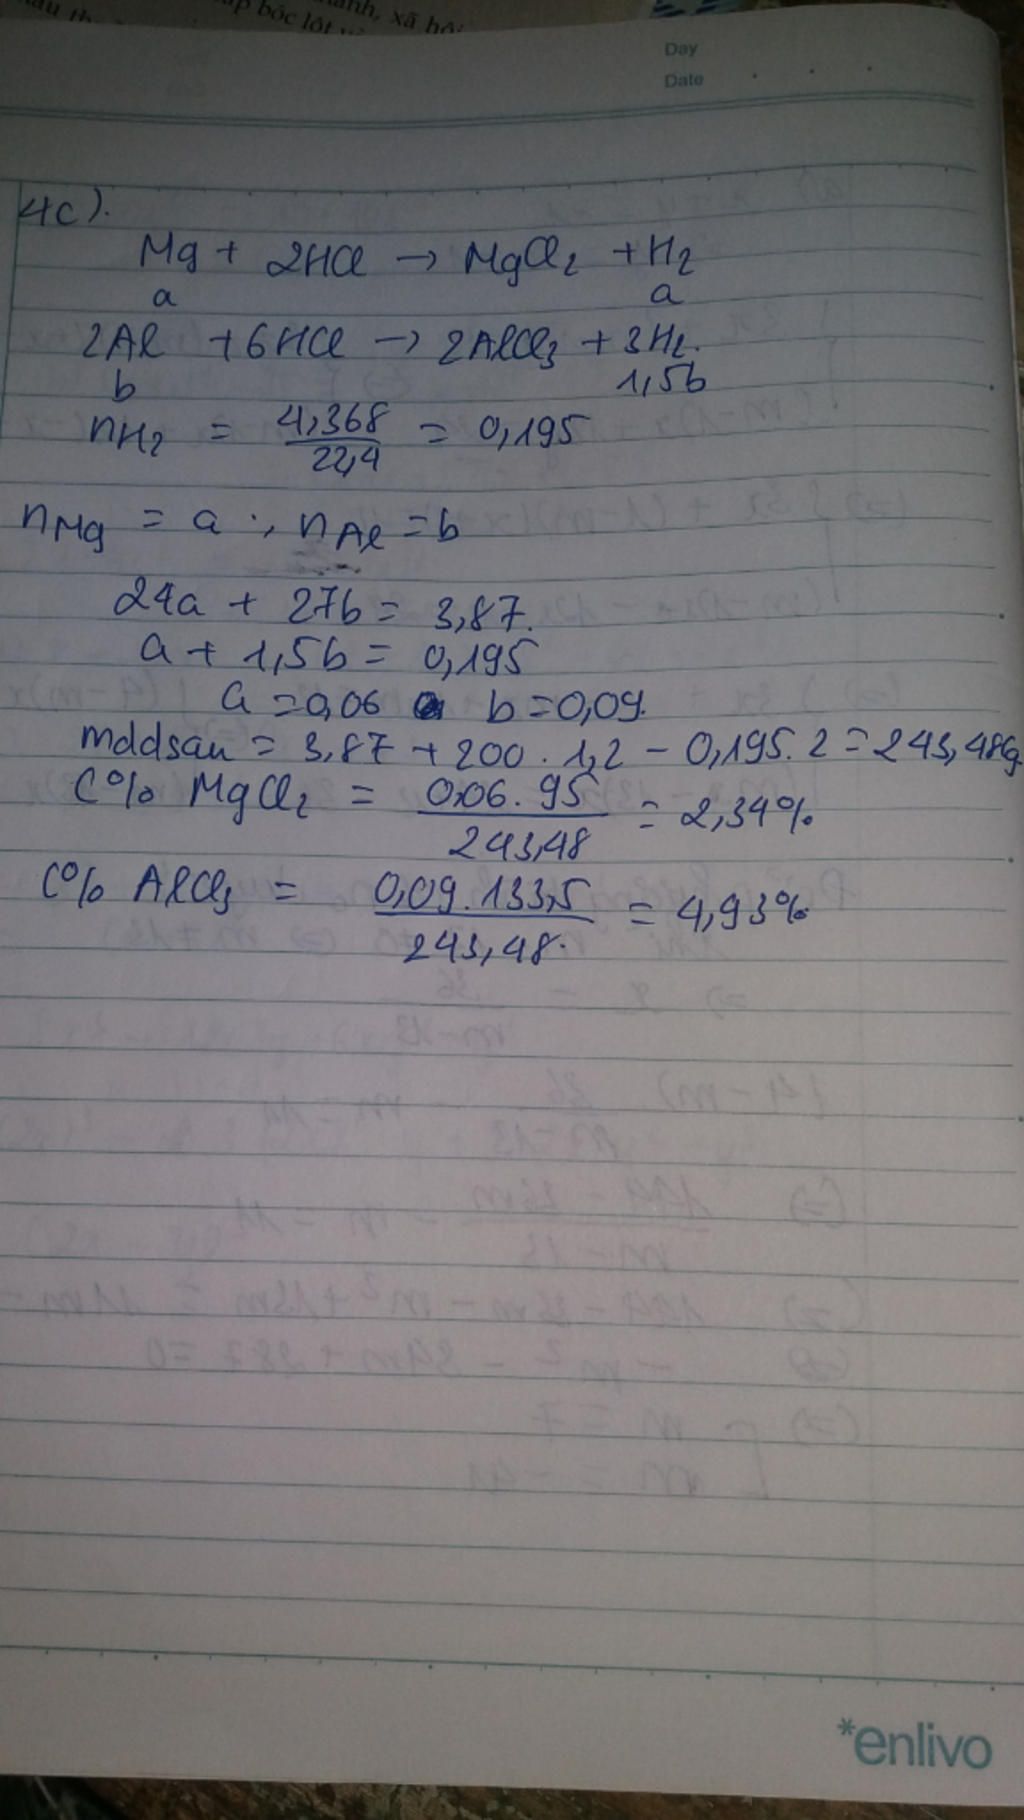 bóc lột
xã hội
Day
Date
4c).
Mg + 2HCl → MgCl2 + H2
a a
2Al + 6HCl → 2AlCl3 + 3H2.
b 1,5b
nH2 = 4,368 / 22,4 = 0,195
nMg = a ; nAl = b
24a + 27b = 3,87.
a + 1,5b = 0,195
a = 0,06 b = 0,09.
mddsau = 3,87 + 200 . 1,2 - 0,195. 2 = 243,48g
C% MgCl2 = 0,06. 95 / 243,48 = 2,34%
C% AlCl3 = 0,09. 133,5 / 243,48. = 4,93%
*enlivo